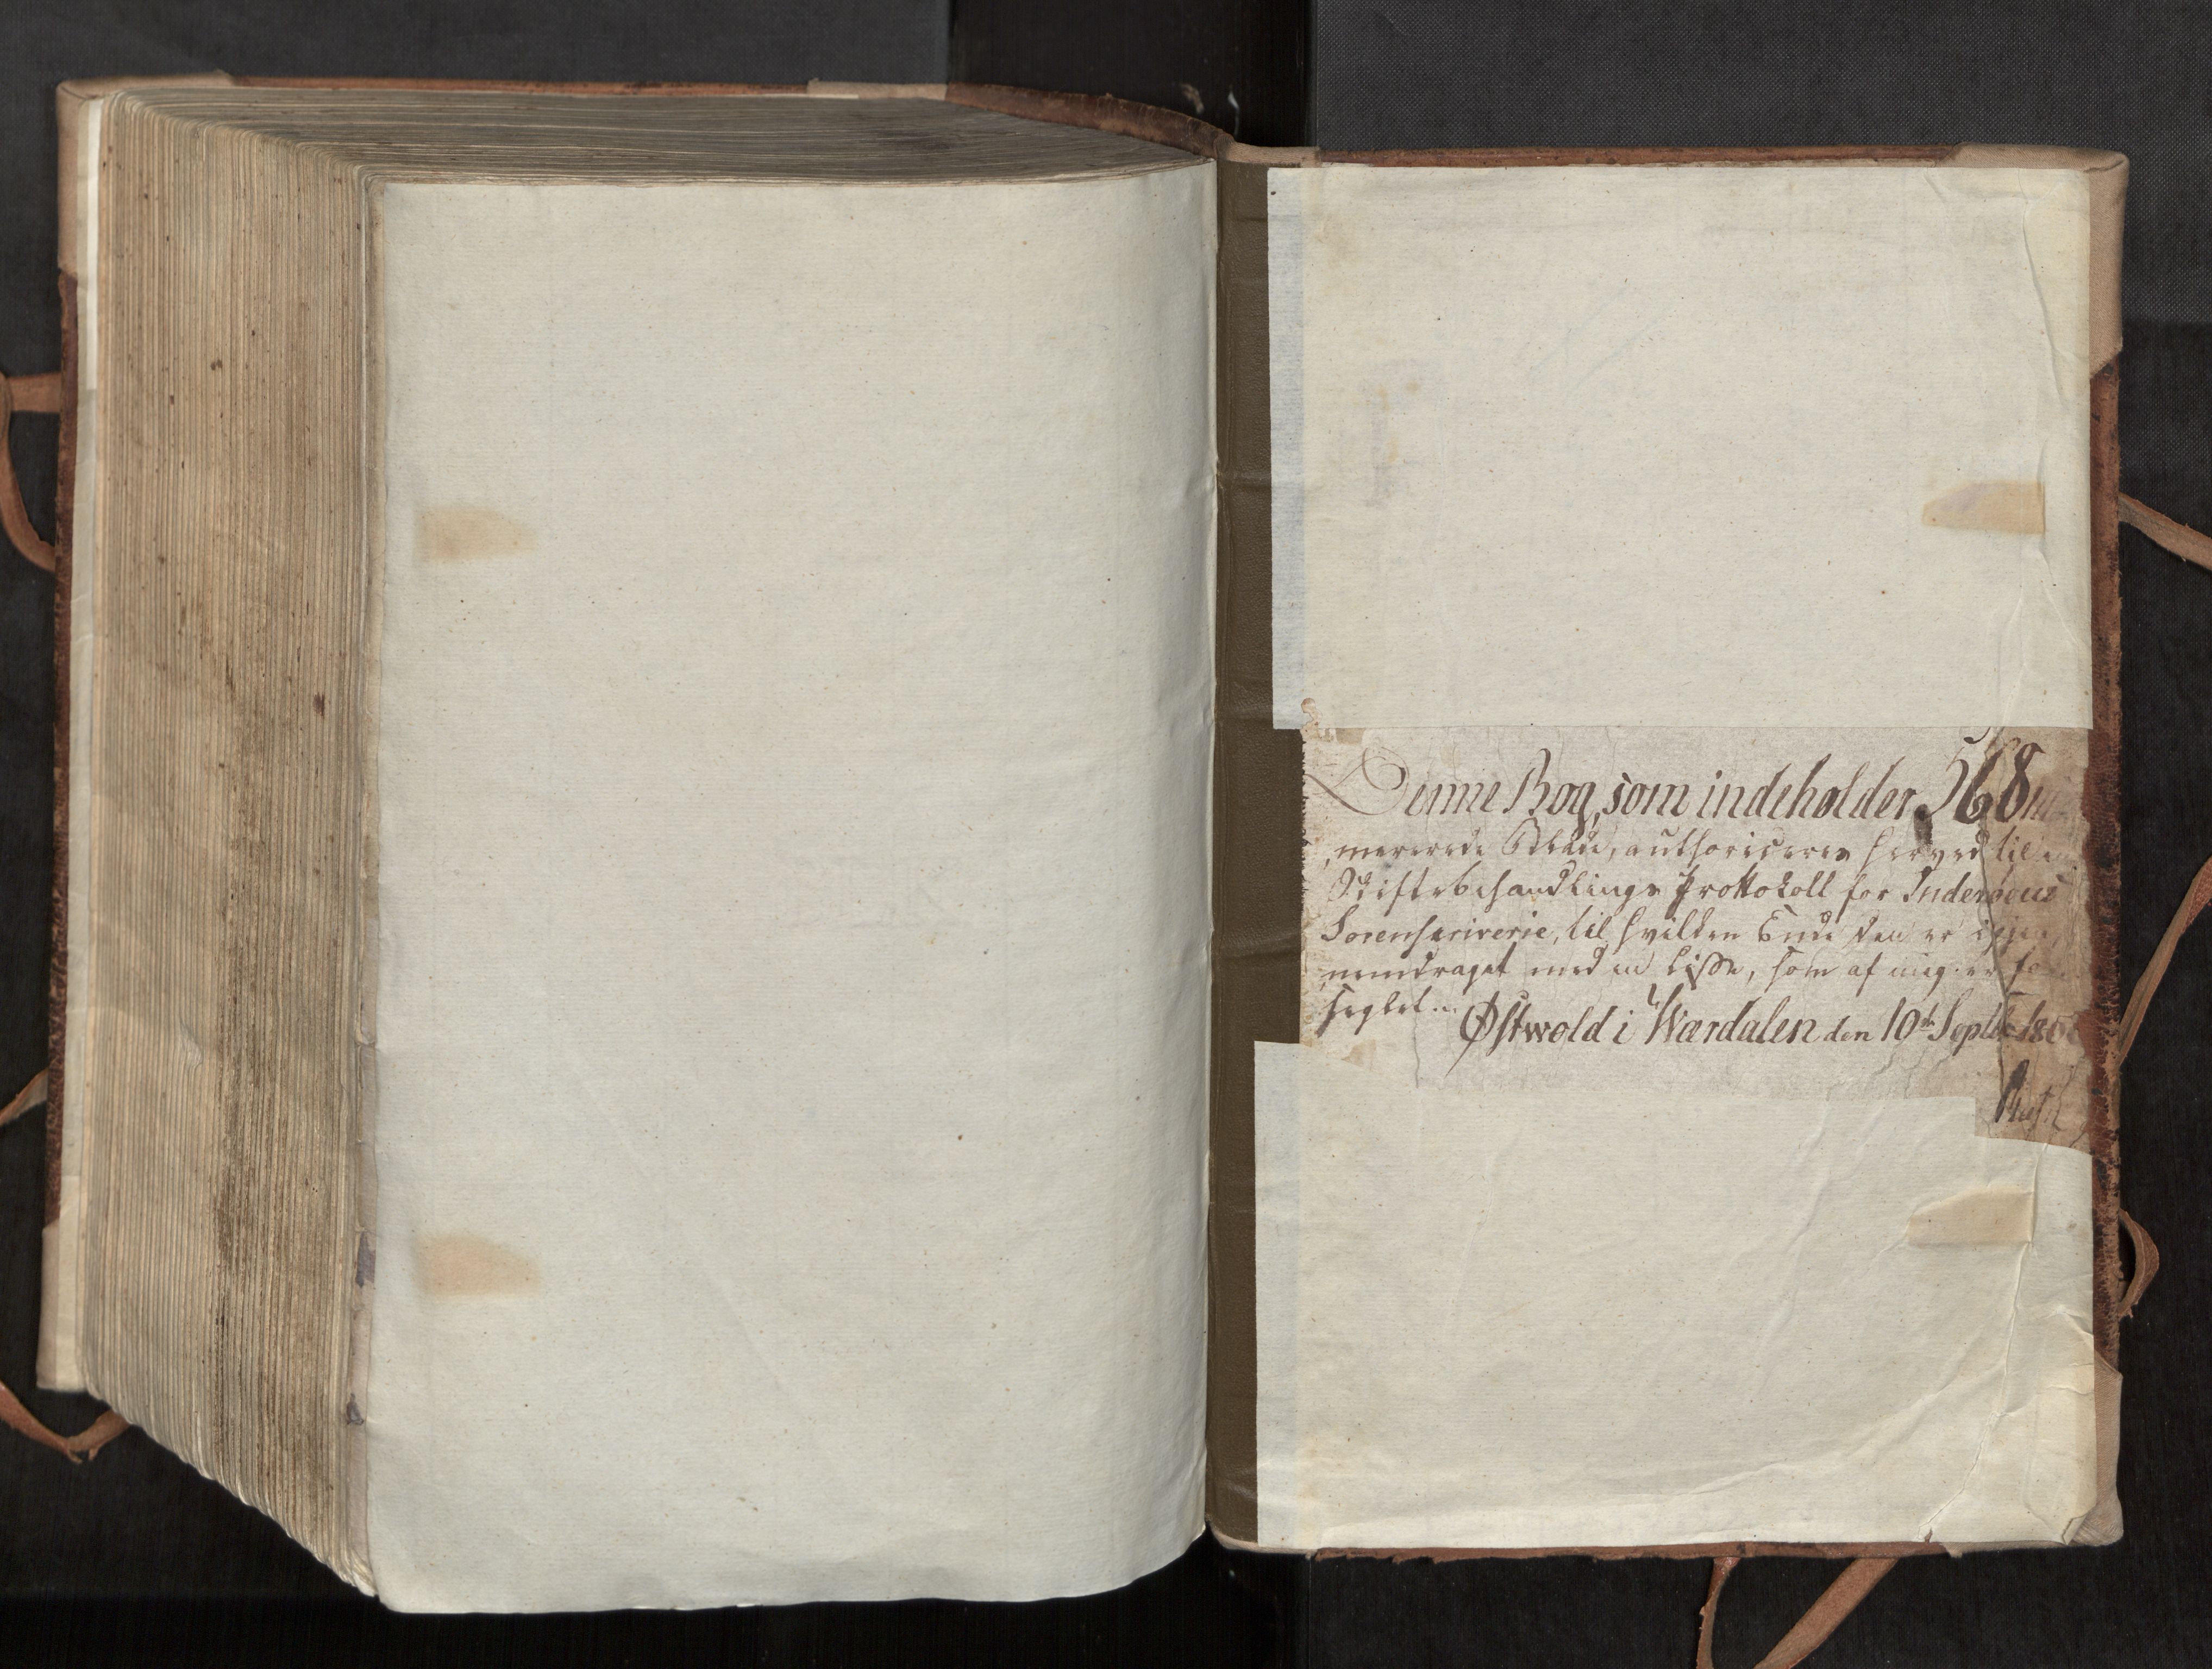 Denne Bog, som indeholder 568 nu-
mererede Blade, authoriceres herved til en
Skiftebehandlings Prottokoll for Inderøens
Sorenskriverie, til hvilken Ende den er igjen-
nemdraget med en Lisse, som af mig er for-
seglet.
Østwold i Wærdalen den 10de Septbr